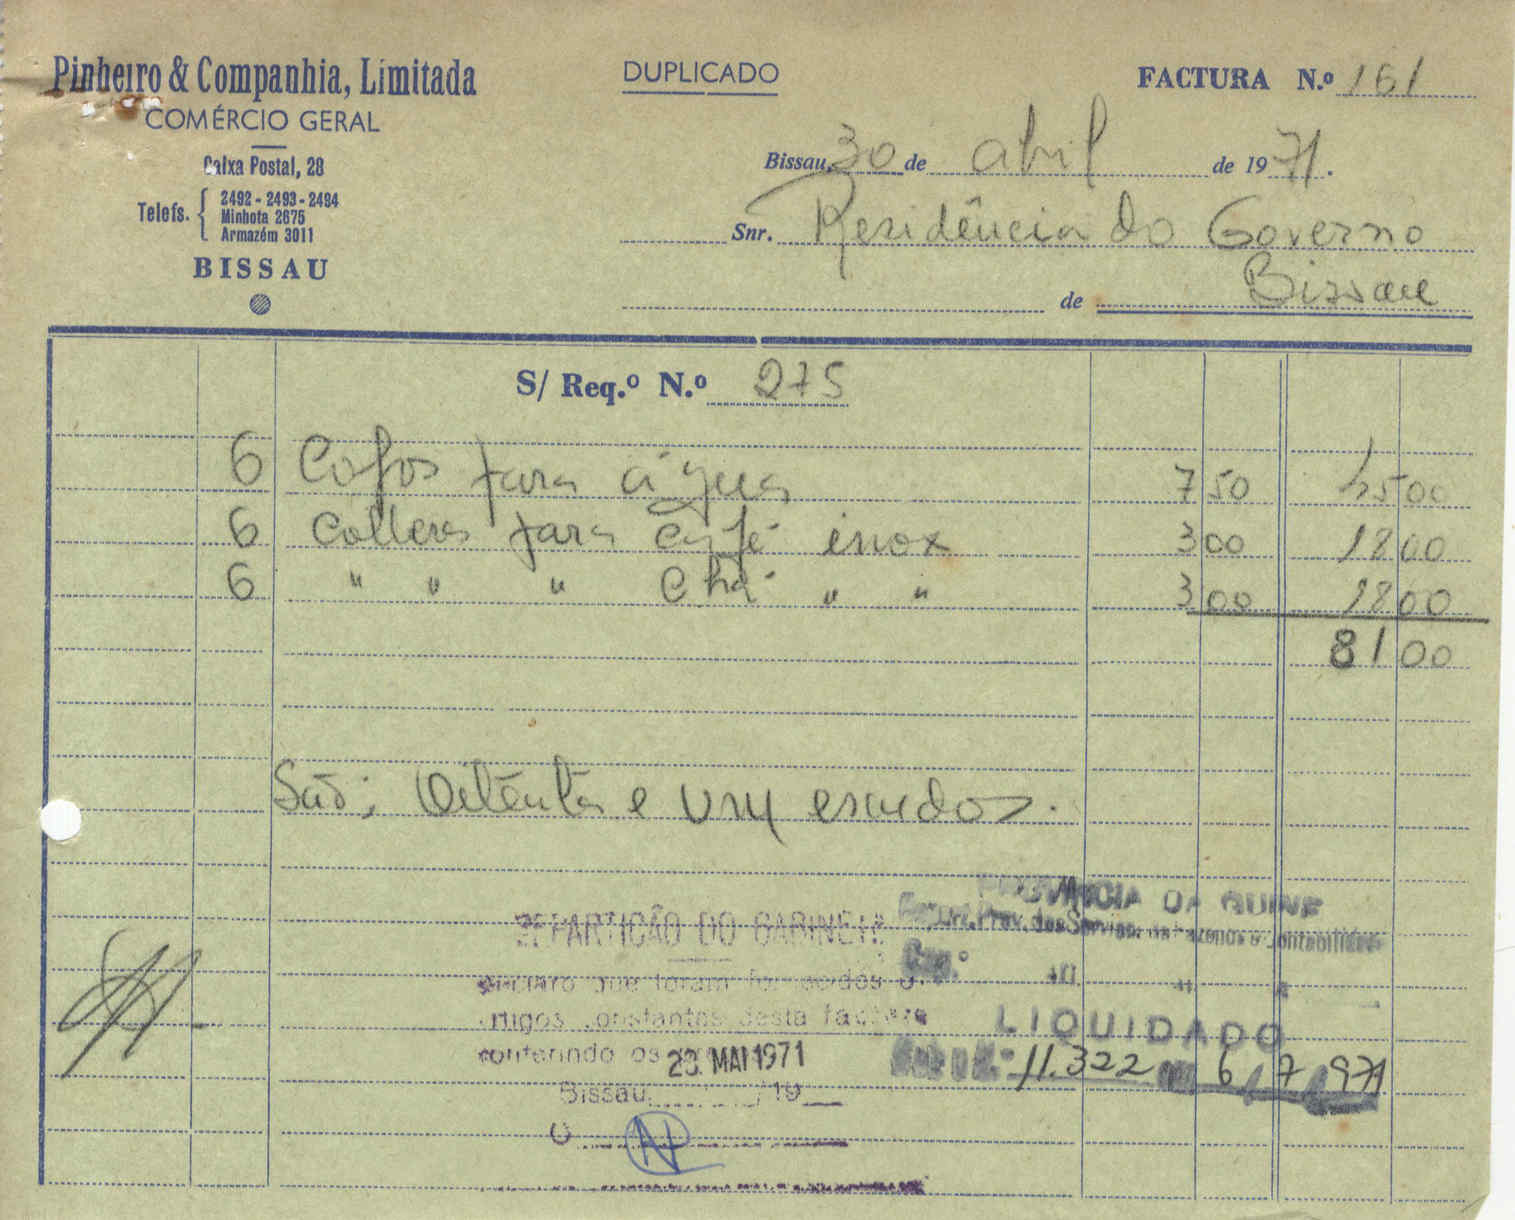 Pinheiro & Companhia, Limitada
COMÉRCIO GERAL
Caixa Postal, 28
Telefs. { 2492 - 2493 - 2494
Minhota 2675
Armazém 3011
BISSAU
DUPLICADO
FACTURA N.º 161
Bissau, 30 de abril de 1971.
Snr. Residência do Governo
de Bissau
S/ Req.º N.º 275
6 Copos para água 7 50 45 00
6 Colleres para café inox 3 00 18 00
6 " " " Chá " " 3 00 18 00
81 00
São; Oitenta e um escudos.
REPARTIÇÃO DO GABINETE
que foram fornecidos
artigos constantes desta factura
conferindo os
29. MAI 1971
Bissau / 19
O
PROVINCIA DA GUINE
Prov. dos Serviços
LIQUIDADO
11.322 6 / 7 / 971